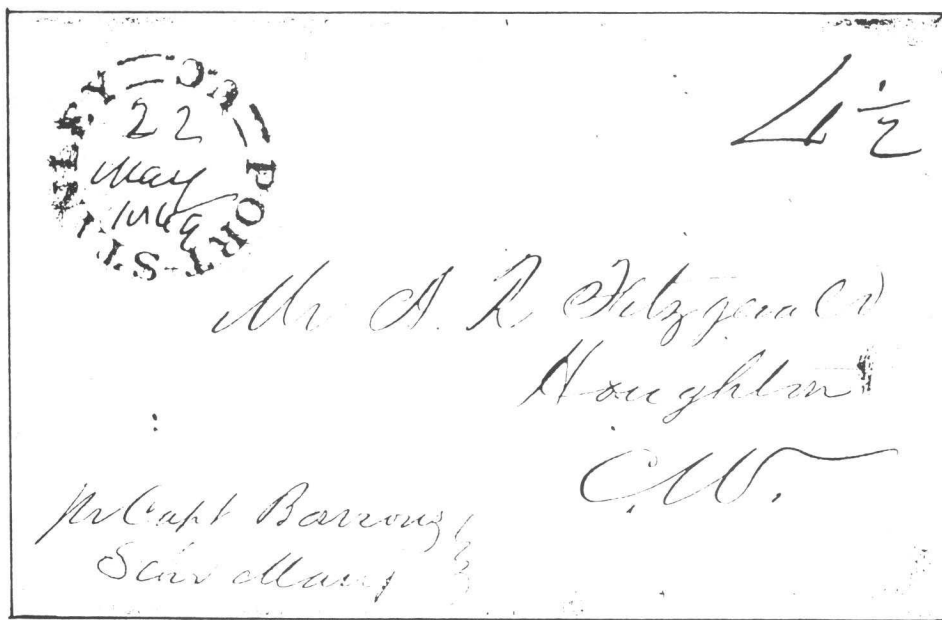 PORT-STANLEY U.C.
22
May
1849
4½
Mr A. R Fitzgerald
Houghton
C.W.
pr Capt Barrong
Schr Mary